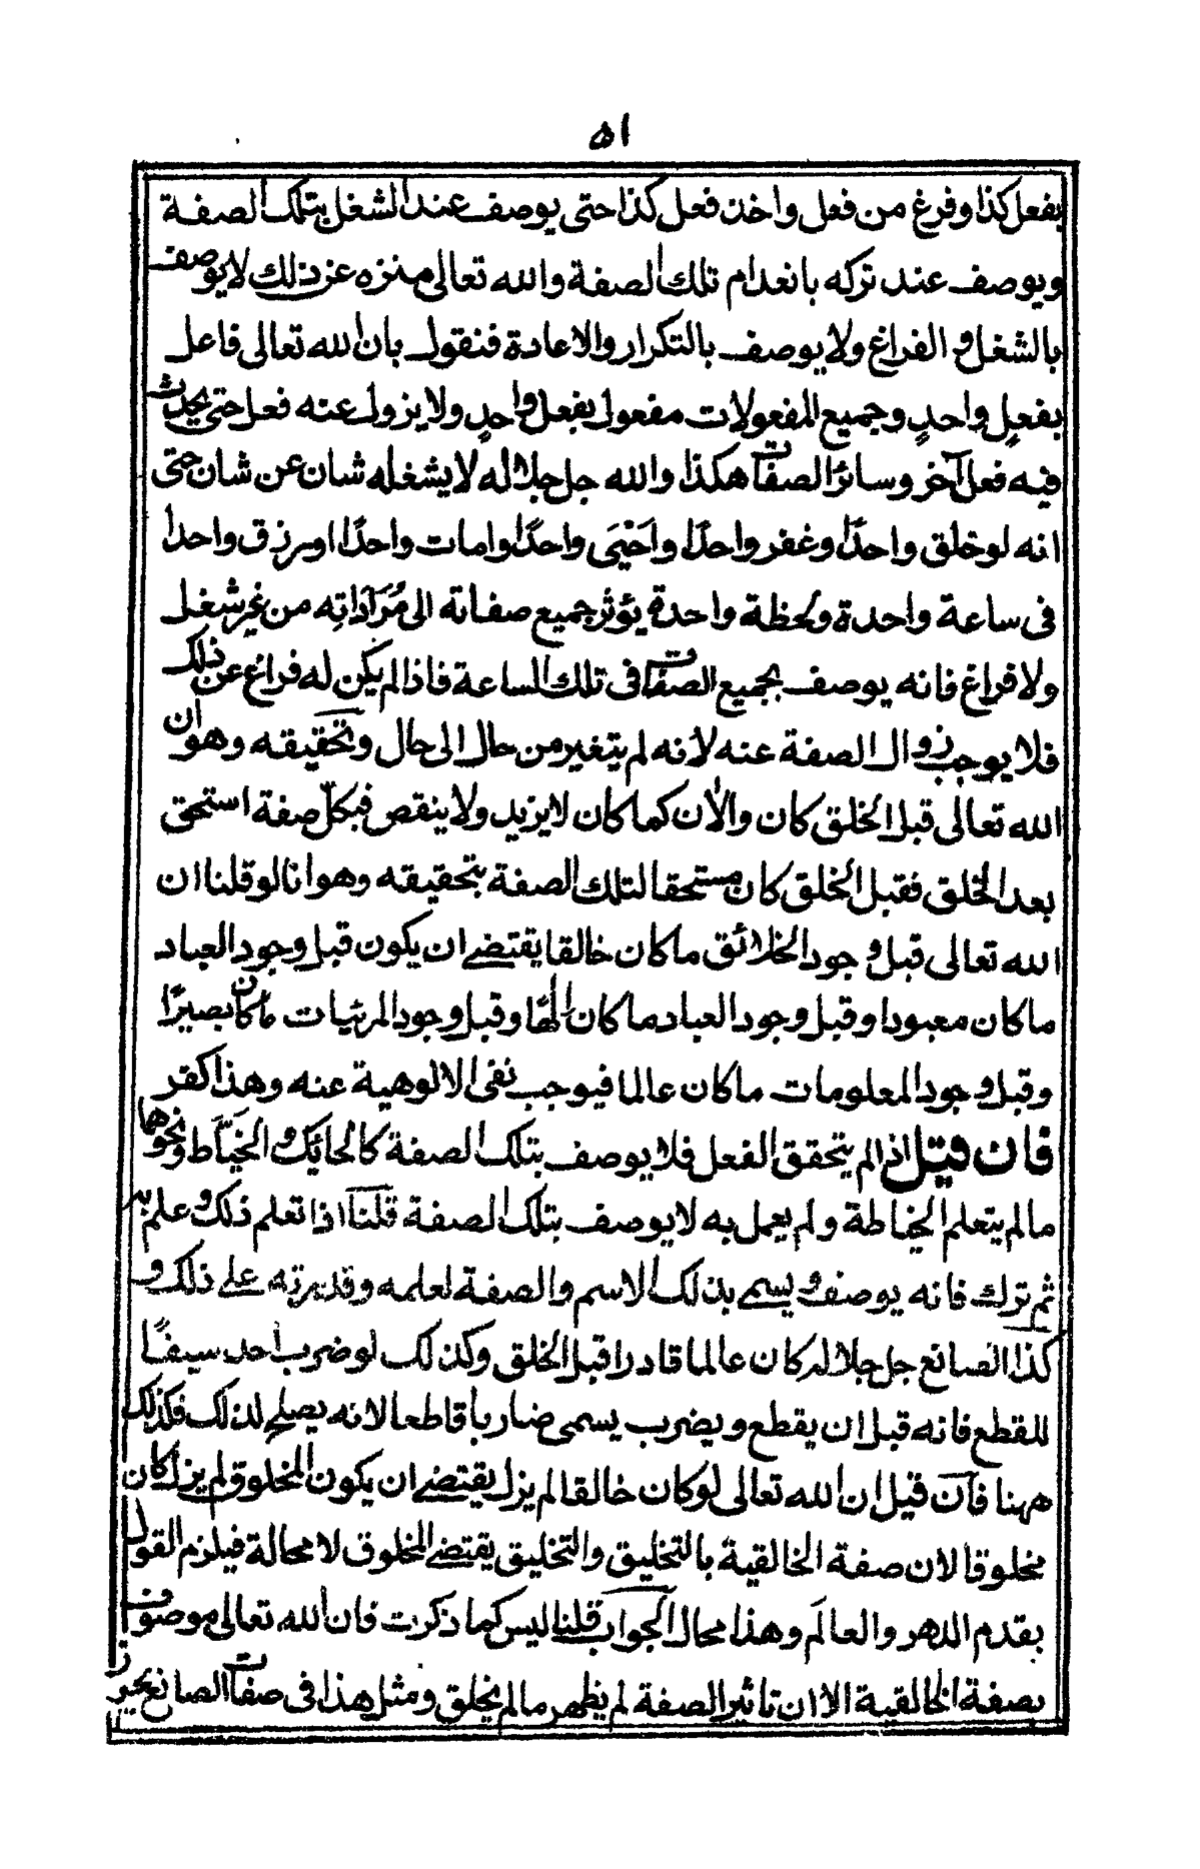 ٥١
بفعل كذا وفرغ من فعل واخذ فعل كذا حتى يوصف عند الشغل بتلك الصفة
ويوصف عند تركه بانعدام تلك الصفة والله تعالى منزه عن ذلك لا يوصف
بالشغل و الفراغ ولا يوصف بالتكرار والاعادة فنقول بان الله تعالى فاعل
بفعلٍ واحدٍ وجميع المفعولات مفعول بفعل واحدٍ ولا يزول عنه فعل حتى يحدث
فيه فعل آخر وسائر الصفات هكذا والله جل جلاله لا يشغله شان عن شان حتى
انه لو خلق واحدًا وغفر واحدًا واَحْيَى واحدًا وامات واحدًا اورزق واحدا
فى ساعة واحدة ولحظة واحدة يؤثر جميع صفاته الى مُرَادَاتِه من غير شغل
ولا فراغ فانه يوصف بجميع الصفات فى تلك الساعة فاذا لم يكن له فراغ عن ذلك
فلا يوجب زوال الصفة عنه لانه لم يتغير من حال الى حال وتحقيقه وهو ان
الله تعالى قبل الخلق كان والأن كما كان لا يزيد ولا ينقص فبكلّ صفة استحق
بعد الخلق فقبل الخلق كان مستحقا لتلك الصفة بتحقيقه وهو انا لو قلنا ان
الله تعالى قبل وجود الخلائق ما كان خالقا يقتضے ان يكون قبل وجود العباد
ما كان معبودا وقبل وجود العباد ما كان الٰهًا وقبل وجود المرئيات ما كان بصيرًا
وقبل وجود المعلومات ما كان عالما فيوجب نفى الالوهية عنه وهذا كفر
فان قيل اذا لم يتحقق الفعل فلا يوصف بتلك الصفة كالحائك و الخيّاط ونحوهما
ما لم يتعلم الخياطة ولم يعمل به لا يوصف بتلك الصفة قلنا اذا تعلم ذلك و علم به
ثم ترك فانه يوصف و يسمے بذلك الاسم والصفة لعلمه وقدرته علے ذلك و
كذا الصانع جل جلاله كان عالما قادرا قبل الخلق وكذلك لو ضرب احد سيفًا
للقطع فانه قبل ان يقطع ويضرب يسمى ضاربا قاطعا لانه يصلح لذلك فكذلك
ههنا فان قيل ان الله تعالى لو كان خالقا لم يزل يقتضے ان يكون المخلوق لم يزل كان
مخلوقا لان صفة الخالقية بالتخليق والتخليق يقتضے المخلوق لا محالة فيلزم القول
بقدم الدهر والعالَم وهذا محال الجواب قلنا ليس كما ذكرت فان الله تعالى موصوف
بصفة الخالقية الا ان تاثير الصفة لم يظهر ما لم يخلق ومثل هذا فى صفات الصانع يجوز